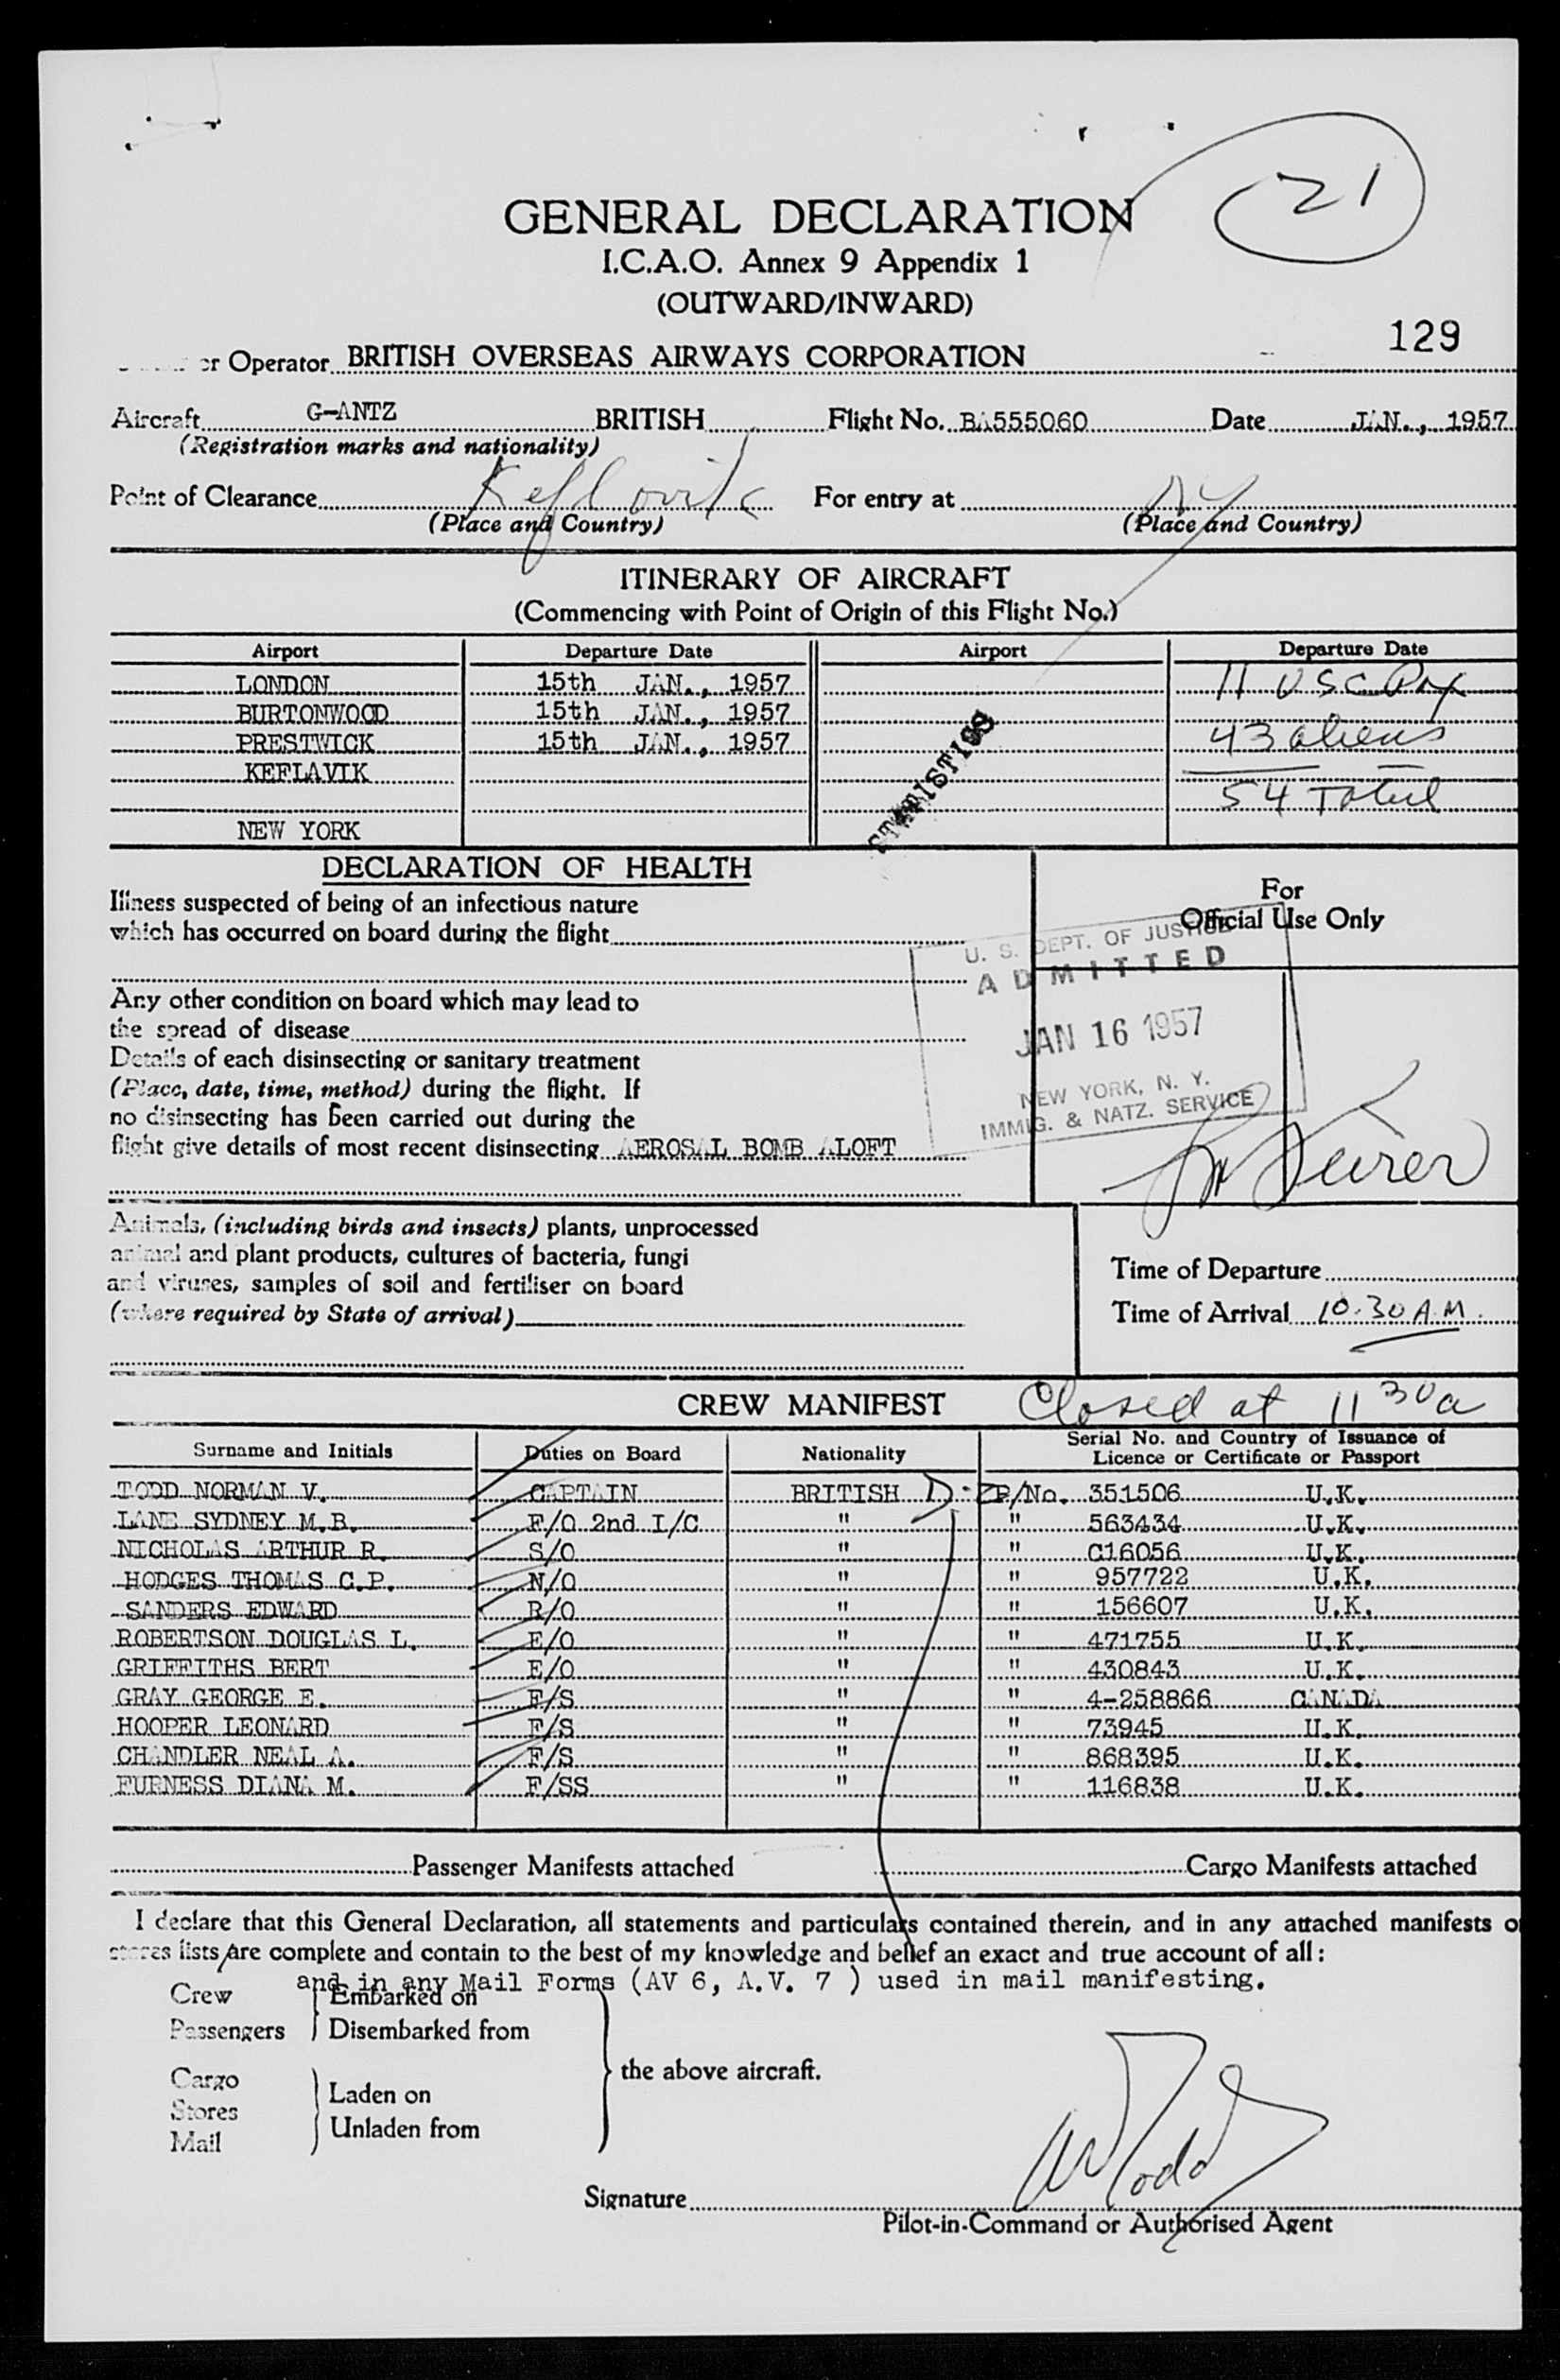 21
GENERAL DECLARATION
I.C.A.O. Annex 9 Appendix 1
(OUTWARD/INWARD)
129
or Operator BRITISH OVERSEAS AIRWAYS CORPORATION
Aircraft G-ANTZ BRITISH Flight No. BA555060 Date JAN., 1957
(Registration marks and nationality)
Point of Clearance Keflavik For entry at NY
(Place and Country) (Place and Country)
ITINERARY OF AIRCRAFT
(Commencing with Point of Origin of this Flight No.)
Airport Departure Date Airport Departure Date
LONDON 15th JAN., 1957 11 USC Pax
BURTONWOOD 15th JAN., 1957
PRESTWICK 15th JAN., 1957 43 aliens
KEFLAVIK
54 Total
NEW YORK
STATISTICS
DECLARATION OF HEALTH
For
Official Use Only
Illness suspected of being of an infectious nature
which has occurred on board during the flight
U. S. DEPT. OF JUSTICE
ADMITTED
JAN 16 1957
NEW YORK, N. Y.
IMMIG. & NATZ. SERVICE
Any other condition on board which may lead to
the spread of disease
Details of each disinsecting or sanitary treatment
(Place, date, time, method) during the flight. If
no disinsecting has been carried out during the
flight give details of most recent disinsecting AEROSAL BOMB ALOFT
Animals, (including birds and insects) plants, unprocessed
animal and plant products, cultures of bacteria, fungi
and viruses, samples of soil and fertiliser on board
(where required by State of arrival)
Time of Departure
Time of Arrival 10.30 A.M.
CREW MANIFEST Closed at 11 30a
Surname and Initials Duties on Board Nationality Serial No. and Country of Issuance of
Licence or Certificate or Passport
TODD NORMAN V. CAPTAIN BRITISH P/No. 351506 U.K.
LANE SYDNEY M.B. F/O 2nd I/C " " 563434 U.K.
NICHOLAS ARTHUR R. S/O " " C16056 U.K.
HODGES THOMAS C.P. N/O " " 957722 U.K.
SANDERS EDWARD R/O " " 156607 U.K.
ROBERTSON DOUGLAS L. E/O " " 471755 U.K.
GRIFFITHS BERT E/O " " 430843 U.K.
GRAY GEORGE E. F/S " " 4-258866 CANADA
HOOPER LEONARD F/S " " 73945 U.K.
CHANDLER NEAL A. F/S " " 868395 U.K.
FURNESS DIANA M. F/SS " " 116838 U.K.
Passenger Manifests attached Cargo Manifests attached
I declare that this General Declaration, all statements and particulars contained therein, and in any attached manifests o
stores lists/are complete and contain to the best of my knowledge and belief an exact and true account of all:
and in any Mail Forms (AV 6, A.V. 7 ) used in mail manifesting.
Crew Embarked on
Passengers Disembarked from
the above aircraft.
Cargo Laden on
Stores
Mail Unladen from
Signature NVTodd
Pilot-in-Command or Authorised Agent